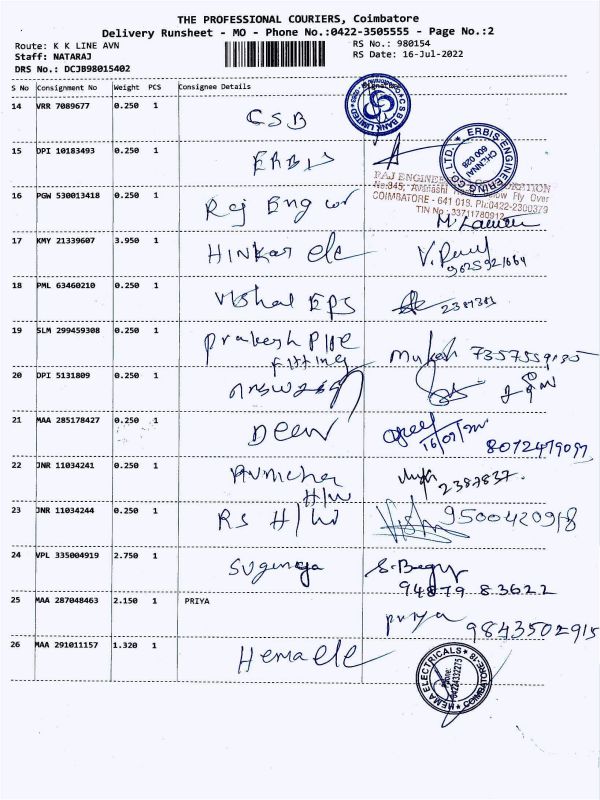 THE PROFESSIONAL COURIERS, Coimbatore
Delivery Runsheet - MO - Phone No.:0422-3505555 - Page No.:2
Route: K K LINE AVN
RS No.: 980154
Staff: NATARAJ
RS Date: 16-Jul-2022
DRS No.: DCJB98015402
S No Consignment No Weight PCS Consignee Details
14 VRR 7089677 0.250 1 CSB
CSB BANK LIMITED
15 DPI 10183493 0.250 1 ERBIS
ERBIS ENGINEERING CO. LTD. CHENNAI 600 028
16 PGW 530013418 0.250 1 Raj Eng
RAJ ENGINEERING CORPORATION
No:345, Avanashi Flow Fly Over
COIMBATORE - 641 018. Ph:0422-2300379
TIN No : 33711780912
17 KMY 21339607 3.950 1 HINKAR ele
18 PML 63460210 0.250 1 Vishal EPS 2381381
19 SLM 299459308 0.250 1 Prakash Pipe
Fitting
Mukesh
20 DPI 5131809 0.250 1
21 MAA 285178427 0.250 1 Deen
16/07/22
8072479097
22 JNR 11034241 0.250 1
H/W
2387837.
23 JNR 11034244 0.250 1 RS H/W
9500420918
24 VPL 335004919 2.750 1 Suguna
94879 83622
25 MAA 287048463 2.150 1 PRIYA
Priya 9843502915
26 MAA 291011157 1.320 1 Hema ele
HEMA ELECTRICALS COIMBATORE-18 Phone: 04224332275